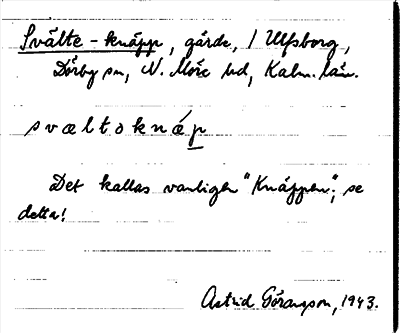 Svälte-knäpp, gärde, / Ulfsborg,
Dörby sn, N. Möre hd, Kalm. län.
svæltoknæp
Det kallas vanligen "Knäppen"; se
detta!
Astrid Göransson, 1943.